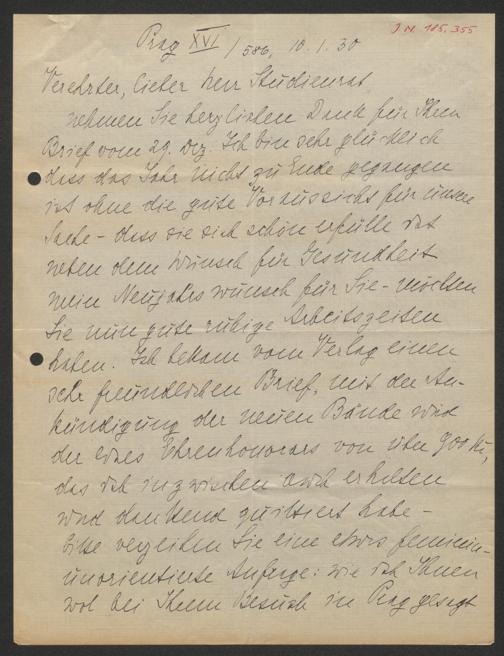 J.N. 185.355
Prag XVI / 586, 10.1.30
Verehrter, lieber Herr Studienrat
nehmen Sie herzlichen Dank für Ihren
Brief vom 29. Dez. Ich bin sehr glücklich
dass das Jahr nicht zu Ende gegangen
ist ohne die gute Voraussicht für unsere
Sache - dass sie sich schön erfülle ist
neben dem Wunsch für Gesundheit
mein Neujahrswunsch für Sie - möchten
Sie nun gute ruhige Arbeitszeiten
haben. Ich bekam vom Verlag einen
sehr freundlichen Brief, mit der An-
kündigung der neuen Bände und
der eines Ehrenhonorars von über 900 Kč,
das ich inzwischen auch erhalten
und dankend quittiert habe -
Bitte verzeihen Sie eine etwas feminin-
unorientierte Anfrage: wie ich Ihnen
wol bei Ihrem Besuch in Prag gesagt